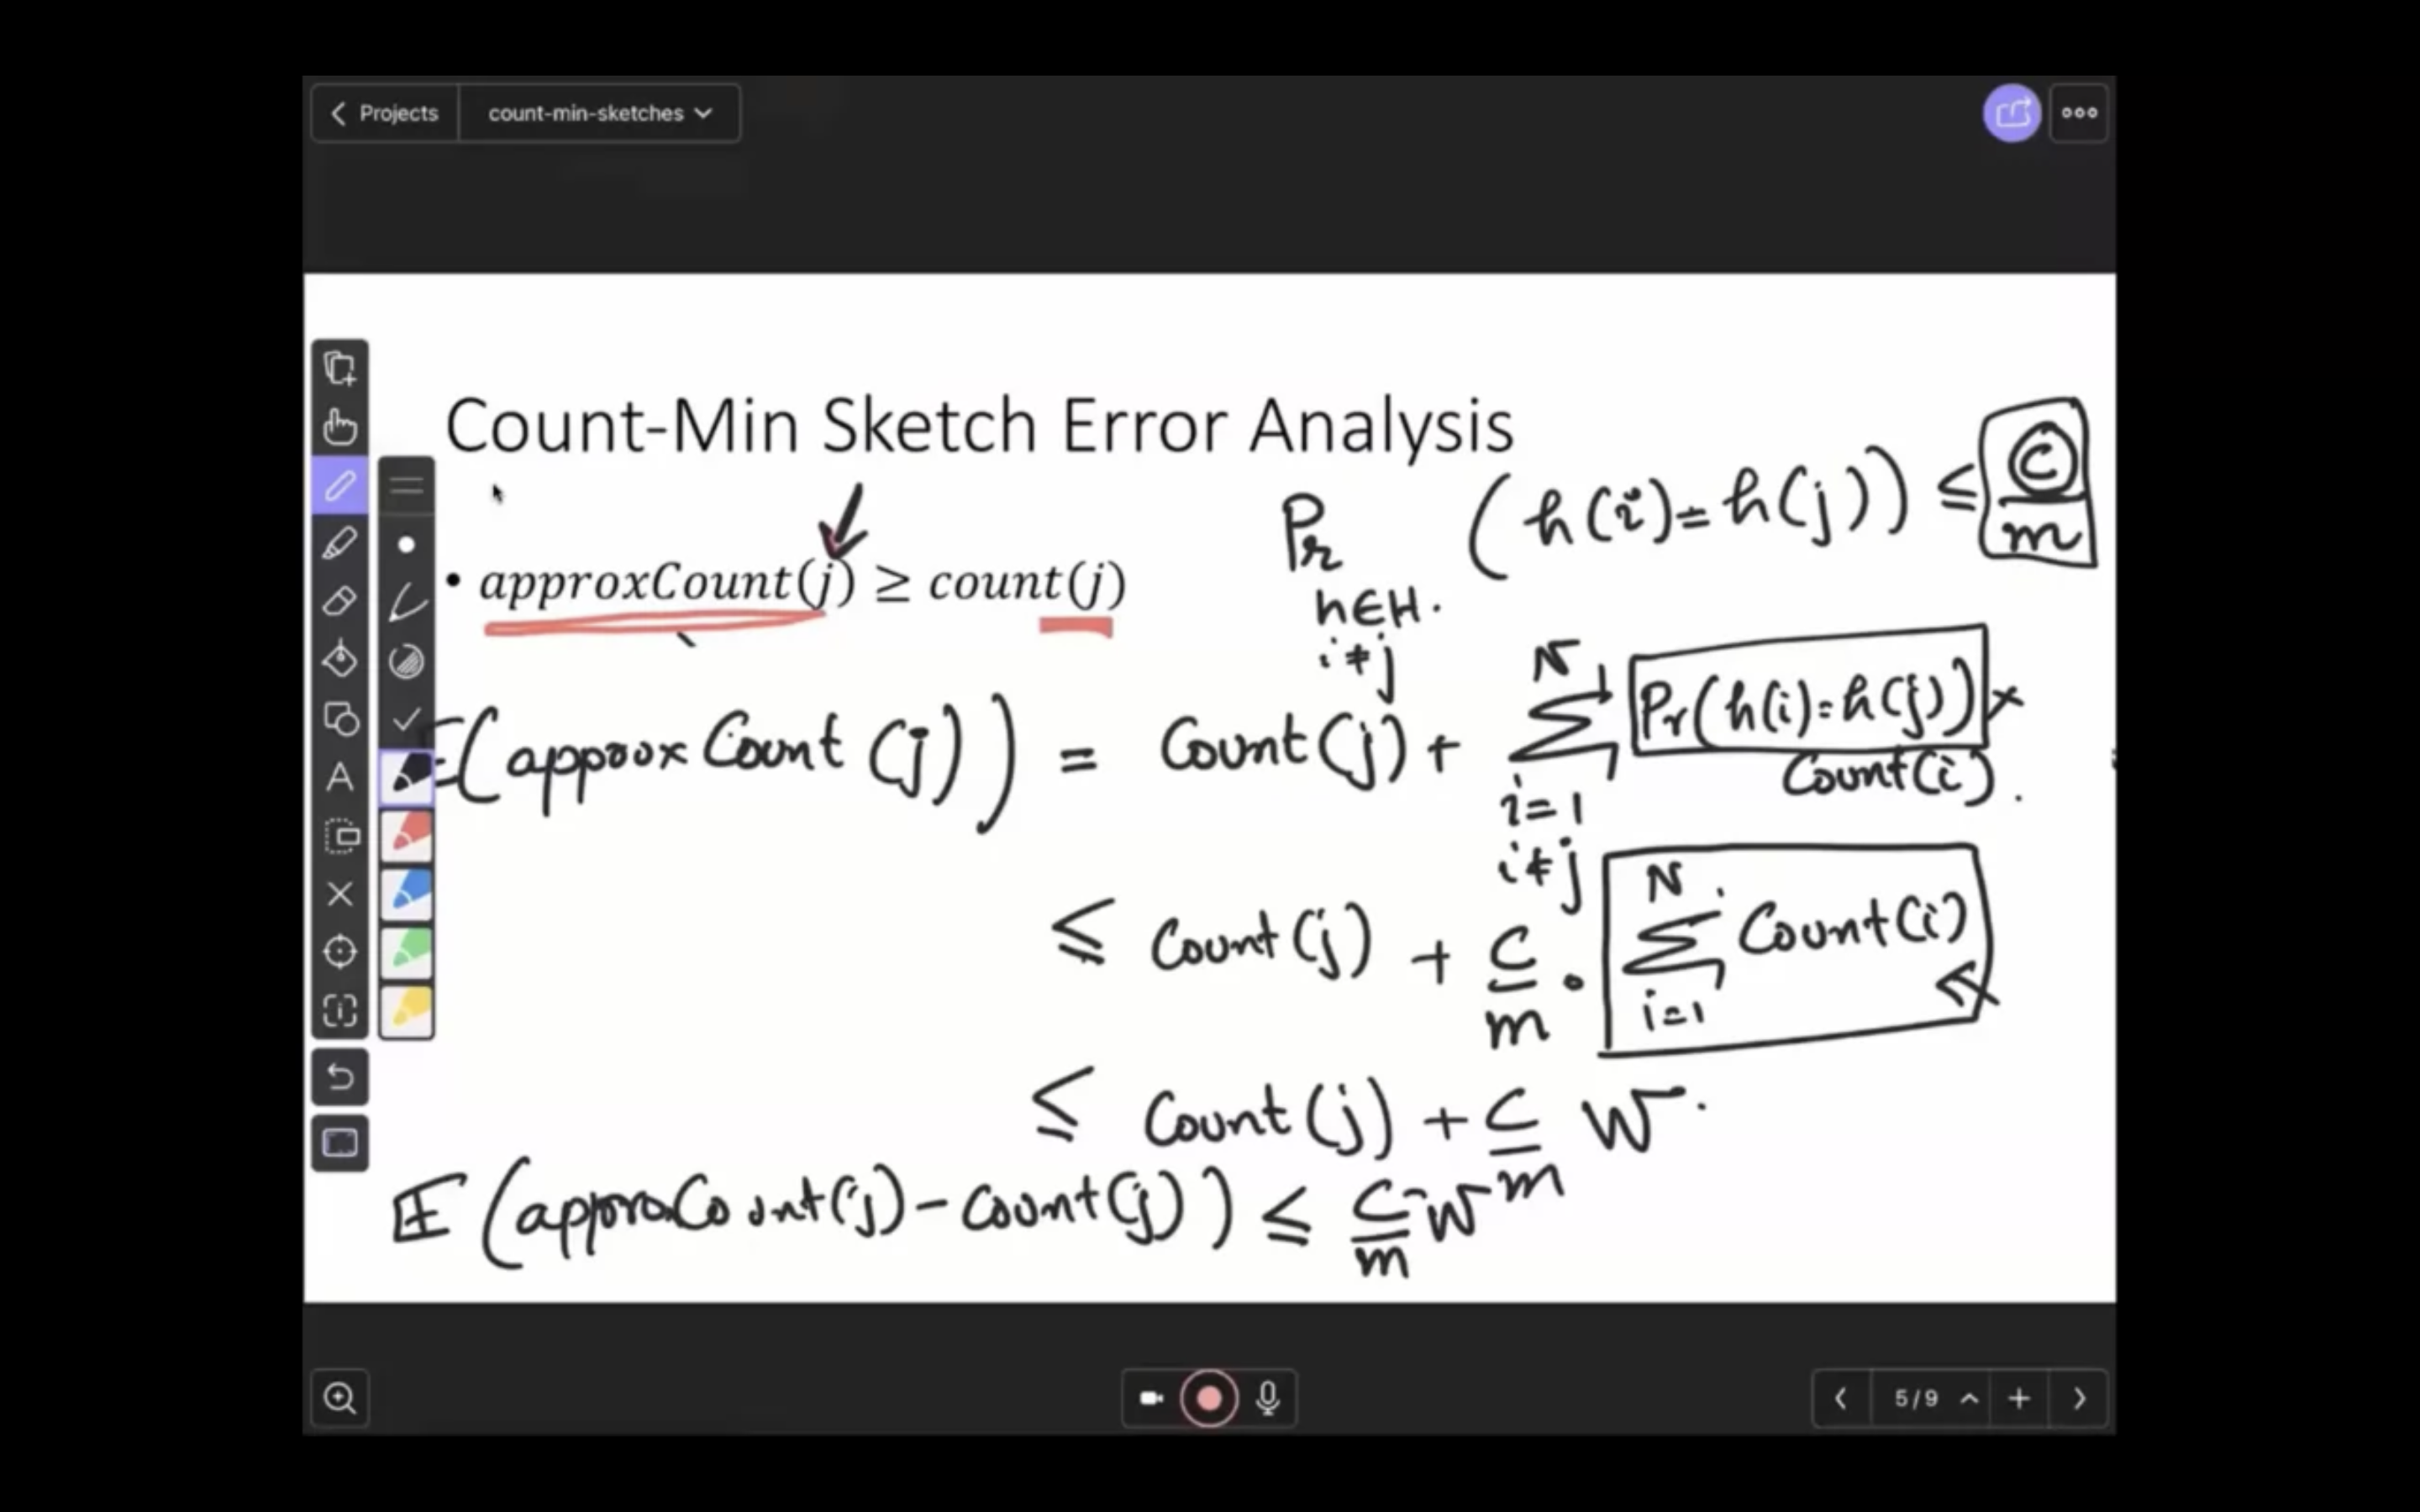 Projects
count-min-sketches
Count-Min Sketch Error Analysis
Pr (h(i)=h(j)) ≤ c/m
h∈H.
i≠j
• approxCount(j) ≥ count(j)
E(approxCount(j)) = Count(j) + N∑i=1 i≠j Pr(h(i)=h(j)) x
Count(i).
≤ Count(j) + c/m · N∑i=1 Count(i)
≤ Count(j) + c/m W.
E(approxCount(j) - Count(j)) ≤ c/m W
A
5/9